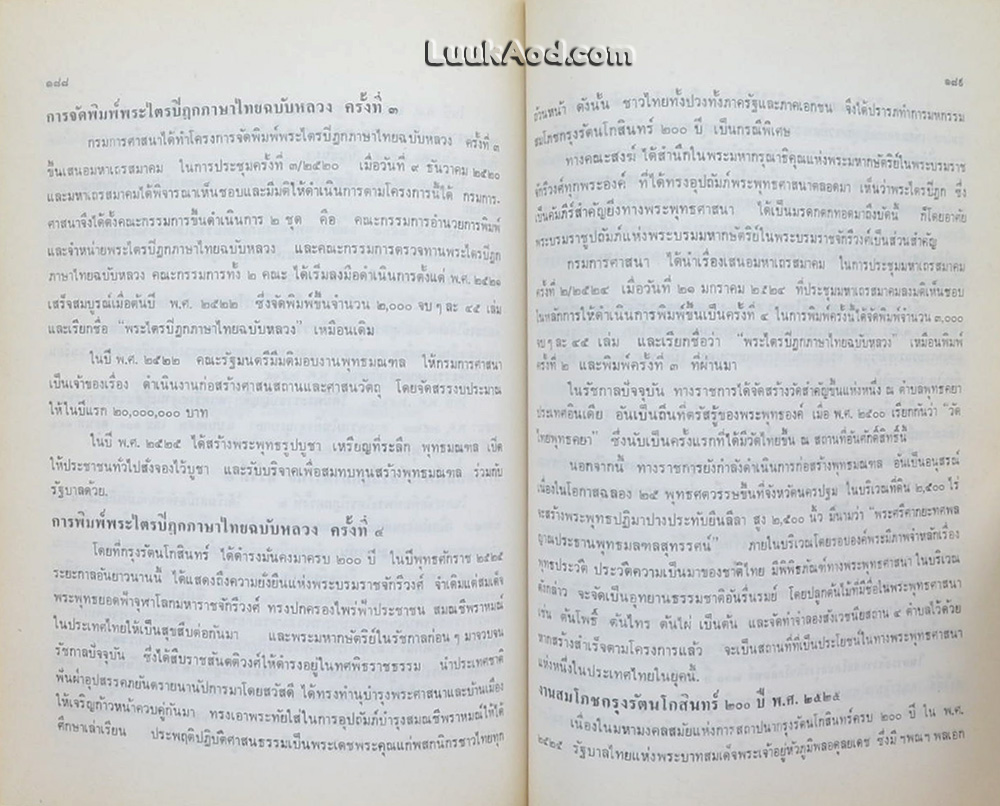 LuukAod.com
๑๘๘
การจัดพิมพ์พระไตรปิฎกภาษาไทยฉบับหลวง ครั้งที่ ๓
กรมการศาสนาได้ทำโครงการจัดพิมพ์พระไตรปิฎกภาษาไทยฉบับหลวง ครั้งที่ ๓
ขึ้นเสนอมหาเถรสมาคม ในการประชุมครั้งที่ ๓/๒๕๒๐ เมื่อวันที่ ๙ ธันวาคม ๒๕๒๐
และมหาเถรสมาคมได้พิจารณาเห็นชอบและมีมติให้ดำเนินการตามโครงการนี้ได้ กรมการ-
ศาสนาจึงได้ตั้งคณะกรรมการขึ้นดำเนินการ ๒ ชุด คือ คณะกรรมการอำนวยการพิมพ์
และจำหน่ายพระไตรปิฎกภาษาไทยฉบับหลวง และคณะกรรมการตรวจทานพระไตรปิฎก
ภาษาไทยฉบับหลวง คณะกรรมการทั้ง ๒ คณะ ได้เริ่มลงมือดำเนินการตั้งแต่ พ.ศ. ๒๕๒๑
เสร็จสมบูรณ์เมื่อต้นปี พ.ศ. ๒๕๒๒ ซึ่งจัดพิมพ์ขึ้นจำนวน ๒,๐๐๐ จบ ๆ ละ ๔๕ เล่ม
และเรียกชื่อ “พระไตรปิฎกภาษาไทยฉบับหลวง” เหมือนเดิม
ในปี พ.ศ. ๒๕๒๒ คณะรัฐมนตรีมีมติมอบงานพุทธมณฑล ให้กรมการศาสนา
เป็นเจ้าของเรื่อง ดำเนินงานก่อสร้างศาสนสถานและศาสนวัตถุ โดยจัดสรรงบประมาณ
ให้ในปีแรก ๒๐,๐๐๐,๐๐๐ บาท
ในปี พ.ศ. ๒๕๒๕ ได้สร้างพระพุทธรูปบูชา เหรียญที่ระลึก พุทธมณฑล เปิด
ให้ประชาชนทั่วไปสั่งจองไว้บูชา และรับบริจาคเพื่อสมทบทุนสร้างพุทธมณฑล ร่วมกับ
รัฐบาลด้วย.
การพิมพ์พระไตรปิฎกภาษาไทยฉบับหลวง ครั้งที่ ๔
โดยที่กรุงรัตนโกสินทร์ ได้ดำรงมั่นคงมาครบ ๒๐๐ ปี ในปีพุทธศักราช ๒๕๒๕
ระยะกาลอันยาวนานนี้ ได้แสดงถึงความยั่งยืนแห่งพระบรมราชจักรีวงศ์ จำเดิมแต่สมเด็จ
พระพุทธยอดฟ้าจุฬาโลกมหาราชจักรีวงศ์ ทรงปกครองไพร่ฟ้าประชาชน สมณชีพราหมณ์
ในประเทศไทยให้เป็นสุขสืบต่อกันมา และพระมหากษัตริย์ในรัชกาลก่อน ๆ มาจวบจน
รัชกาลปัจจุบัน ซึ่งได้สืบราชสันตติวงศ์ให้ดำรงอยู่ในทศพิธราชธรรม นำประเทศชาติ
พ้นผ่าอุปสรรคภยันตรายนานัปการมาโดยสวัสดี ได้ทรงทำนุบำรุงพระศาสนาและบ้านเมือง
ให้เจริญก้าวหน้าควบคู่กันมา ทรงเอาพระทัยใส่ในการอุปถัมภ์บำรุงสมณชีพราหมณ์ให้ได้
ศึกษาเล่าเรียน ประพฤติปฏิบัติศาสนธรรมเป็นพระเดชพระคุณแก่พสกนิกรชาวไทยทุก
๑๘๙
ถ้วนหน้า ดังนั้น ชาวไทยทั้งปวงทั้งภาครัฐและภาคเอกชน จึงได้ปรารภทำการมหกรรม
สมโภชกรุงรัตนโกสินทร์ ๒๐๐ ปี เป็นกรณีพิเศษ
ทางคณะสงฆ์ ได้สำนึกในพระมหากรุณาธิคุณแห่งพระมหากษัตริย์ในพระบรมราช
จักรีวงศ์ทุกพระองค์ ที่ได้ทรงอุปถัมภ์พระพุทธศาสนาตลอดมา เห็นว่าพระไตรปิฎก ซึ่ง
เป็นคัมภีร์สำคัญยิ่งทางพระพุทธศาสนา ได้เป็นมรดกตกทอดมาถึงบัดนี้ ก็โดยอาศัย
พระบรมราชูปถัมภ์แห่งพระบรมมหากษัตริย์ในพระบรมราชจักรีวงศ์เป็นส่วนสำคัญ
กรมการศาสนา ได้นำเรื่องเสนอมหาเถรสมาคม ในการประชุมมหาเถรสมาคม
ครั้งที่ ๒/๒๕๒๔ เมื่อวันที่ ๒๑ มกราคม ๒๕๒๔ ที่ประชุมมหาเถรสมาคมลงมติเห็นชอบ
ในหลักการให้ดำเนินการพิมพ์ขึ้นเป็นครั้งที่ ๔ ในการพิมพ์ครั้งนี้ได้จัดพิมพ์จำนวน ๓,๐๐๐
จบ ๆ ละ ๔๕ เล่ม และเรียกชื่อว่า “พระไตรปิฎกภาษาไทยฉบับหลวง” เหมือนพิมพ์
ครั้งที่ ๒ และพิมพ์ครั้งที่ ๓ ที่ผ่านมา
ในรัชกาลปัจจุบัน ทางราชการได้จัดสร้างวัดสำคัญขึ้นแห่งหนึ่ง ณ ตำบลพุทธคยา
ประเทศอินเดีย อันเป็นถิ่นที่ตรัสรู้ของพระพุทธองค์ เมื่อ พ.ศ. ๒๕๐๐ เรียกกันว่า “วัด
ไทยพุทธคยา” ซึ่งนับเป็นครั้งแรกที่ได้มีวัดไทยขึ้น ณ สถานที่อันศักดิ์สิทธิ์นี้
นอกจากนี้ ทางราชการยังกำลังดำเนินการก่อสร้างพุทธมณฑล อันเป็นอนุสรณ์
เนื่องในโอกาสฉลอง ๒๕ พุทธศตวรรษขึ้นที่จังหวัดนครปฐม ในบริเวณที่ดิน ๒,๕๐๐ ไร่
จะสร้างพระพุทธปฏิมาปางประทับยืนลีลา สูง ๒,๕๐๐ นิ้ว มีนามว่า “พระศรีศากยะทศพล
ญาณประธานพุทธมลฑลสุทรรศน์” ภายในบริเวณโดยรอบองค์พระมีภาพจำหลักเรื่อง
พุทธประวัติ ประวัติความเป็นมาของชาติไทย มีพิพิธภัณฑ์ทางพระพุทธศาสนา ในบริเวณ
ดังกล่าว จะจัดเป็นอุทยานธรรมชาติอันรื่นรมย์ โดยปลูกต้นไม้ที่มีชื่อในพระพุทธศาสนา
เช่น ต้นโพธิ์ ต้นไทร ต้นไผ่ เป็นต้น และจัดทำจำลองสังเวชนียสถาน ๔ ตำบลไว้ด้วย
หากสร้างสำเร็จตามโครงการแล้ว จะเป็นสถานที่ที่เป็นประโยชน์ในทางพระพุทธศาสนา
แห่งหนึ่งในประเทศไทยในยุคนี้.
งานสมโภชกรุงรัตนโกสินทร์ ๒๐๐ ปี พ.ศ. ๒๕๒๕
เนื่องในมหามงคลสมัยแห่งการสถาปนากรุงรัตนโกสินทร์ครบ ๒๐๐ ปี ใน พ.ศ.
๒๕๒๕ รัฐบาลไทยแห่งพระบาทสมเด็จพระเจ้าอยู่หัวภูมิพลอดุลยเดช ซึ่งมี ฯพณฯ พลเอก